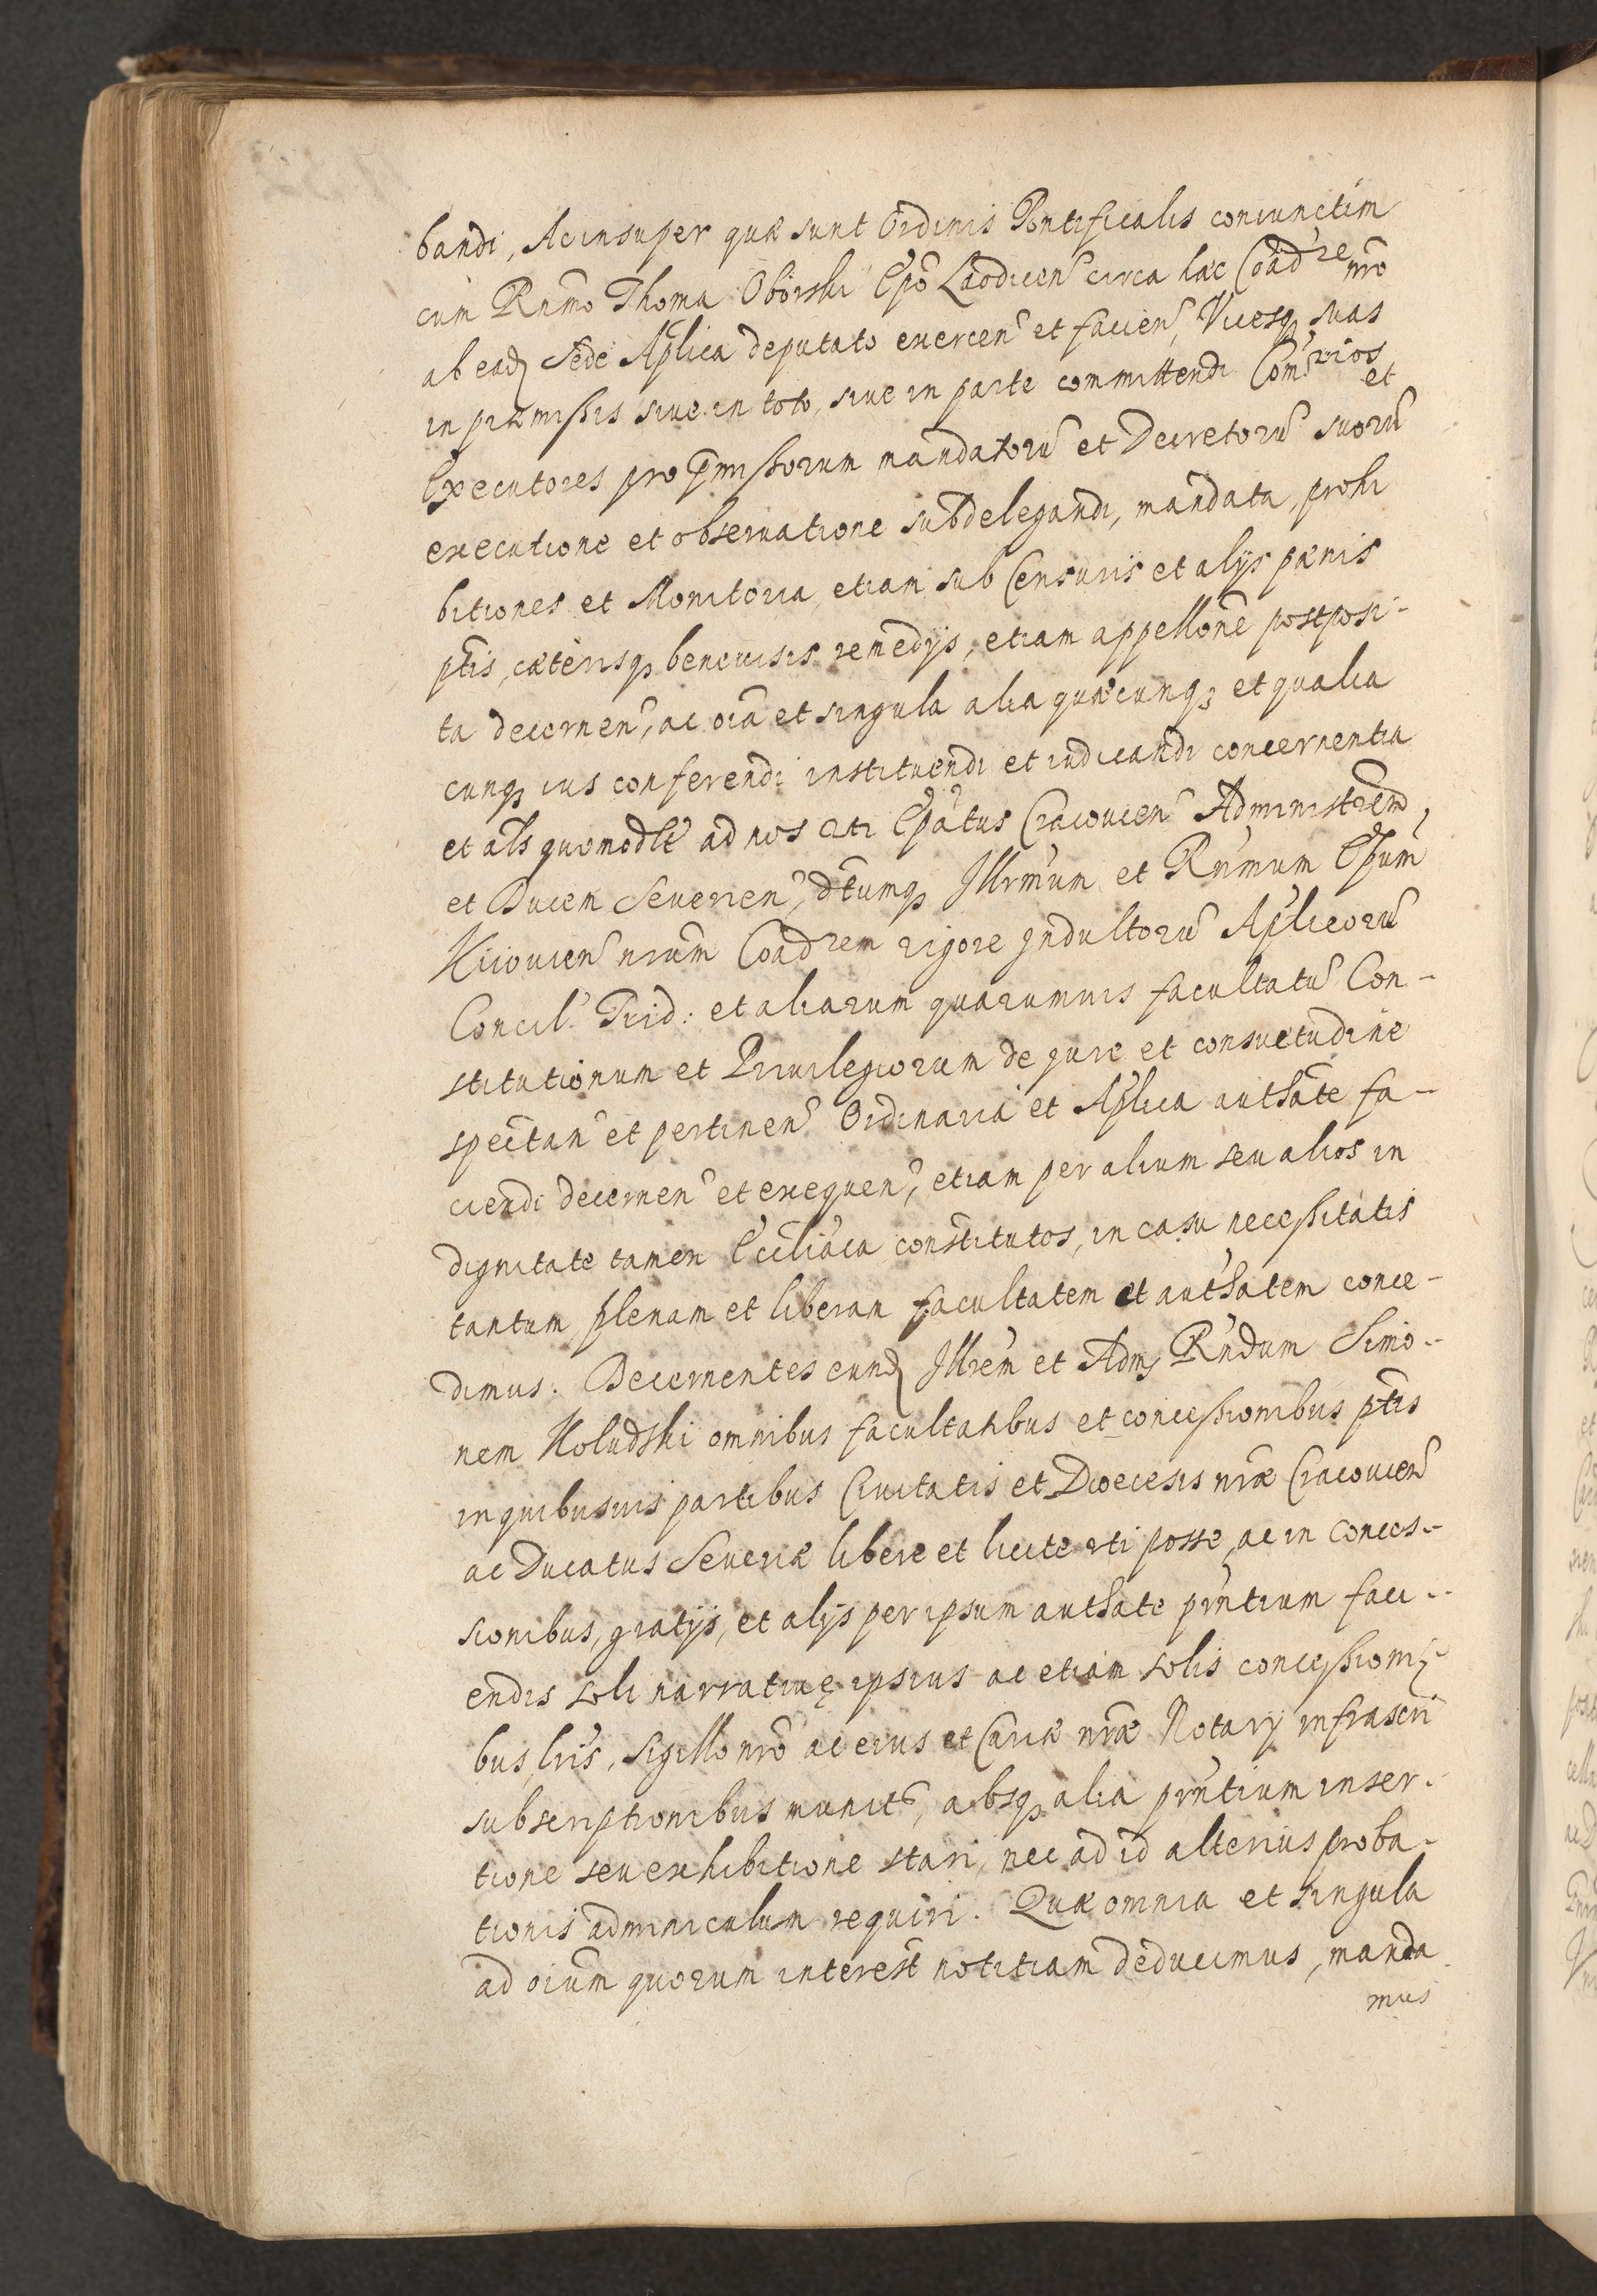 bandi, Ac insuper quæ sunt Ordinis Pontificalis coniunctim
cum Rñmo Thoma Oborski Epõ Laodicen̄ circa hæc Coadre nrõ
ab ead. Sede Aplica deputato exercen̄ et facien̄, Vicesq; suas
in præmissis siue in toto, siue in parte committendi Com̄rios et
Executores pro p̄missorum mandatorū et Decretorū suorū
executione et obseruatione subdelegandi, mandata, prohi
bitiones et Monitoria, etiam sub Censuris et alijs pænis
ptis, cæterisq; beneuisis remedijs, etiam appellone postposi-
ta decernen̄, ac oĩa et singula alia quæcunq; et qualia
cunq; ius conferendi instituendi et iudicandi concernentia
et als quomodlt ad nos uti Epatus Cracouien̄ Administrem,
et Ducem Seuerien̄, dtumq; Illrmum et Rñmum Epum
Kiiouien̄ nrum Coadrem uigore Indultorū Aplicorū
Concil: Trid: et aliarum quarumuis facultatū Con-
stitutionum et Priuilegiorum de jure et consuetudine
spectan̄ et pertinen̄ Ordinaria et Aplica authate fa-
ciendi decernen̄ et exequen̄, etiam per alium seu alios in
dignitate tamen Ecclîaca constitutos, in casu necessitatis
tantum plenam et liberam facultatem et authatem conce-
dimus. Decernentes eund. Illrem et Adm. Rñdum Simo-
nem Koludzki omnibus facultatibus et concessionibus ptis
in quibusuis partibus Ciuitatis et Diœcesis nræ Cracouien̄
ac Ducatus Seueriæ libere et licite uti posse, ac in conces-
sionibus, gratijs, et alijs per ipsum authate pñtium faci-
endis soli narratiuę ipsius ac etiam solis concessioni-
bus, lris, sigillo nrõ ac eius et Cariæ nræ Notarij infrascri
subscriptionibus munitis, absq; alia pñtium inser-
tione seu exhibitione stari, nec ad id alterius proba-
tionis adminiculum requiri. Quæ omnia et singula
ad oium quorum interest notitiam deducimus, manda
mus